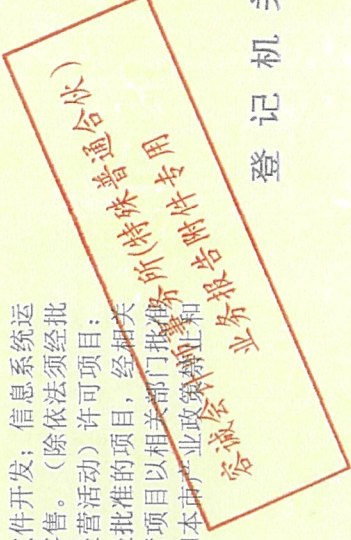 件开发；信息系统运
售。（除依法须经批
营活动）许可项目：
批准的项目，经相关
项目以相关部门批准
本市产业政策禁止和
容诚会计师事务所(特殊普通合伙)
业务报告附件专用
登记机